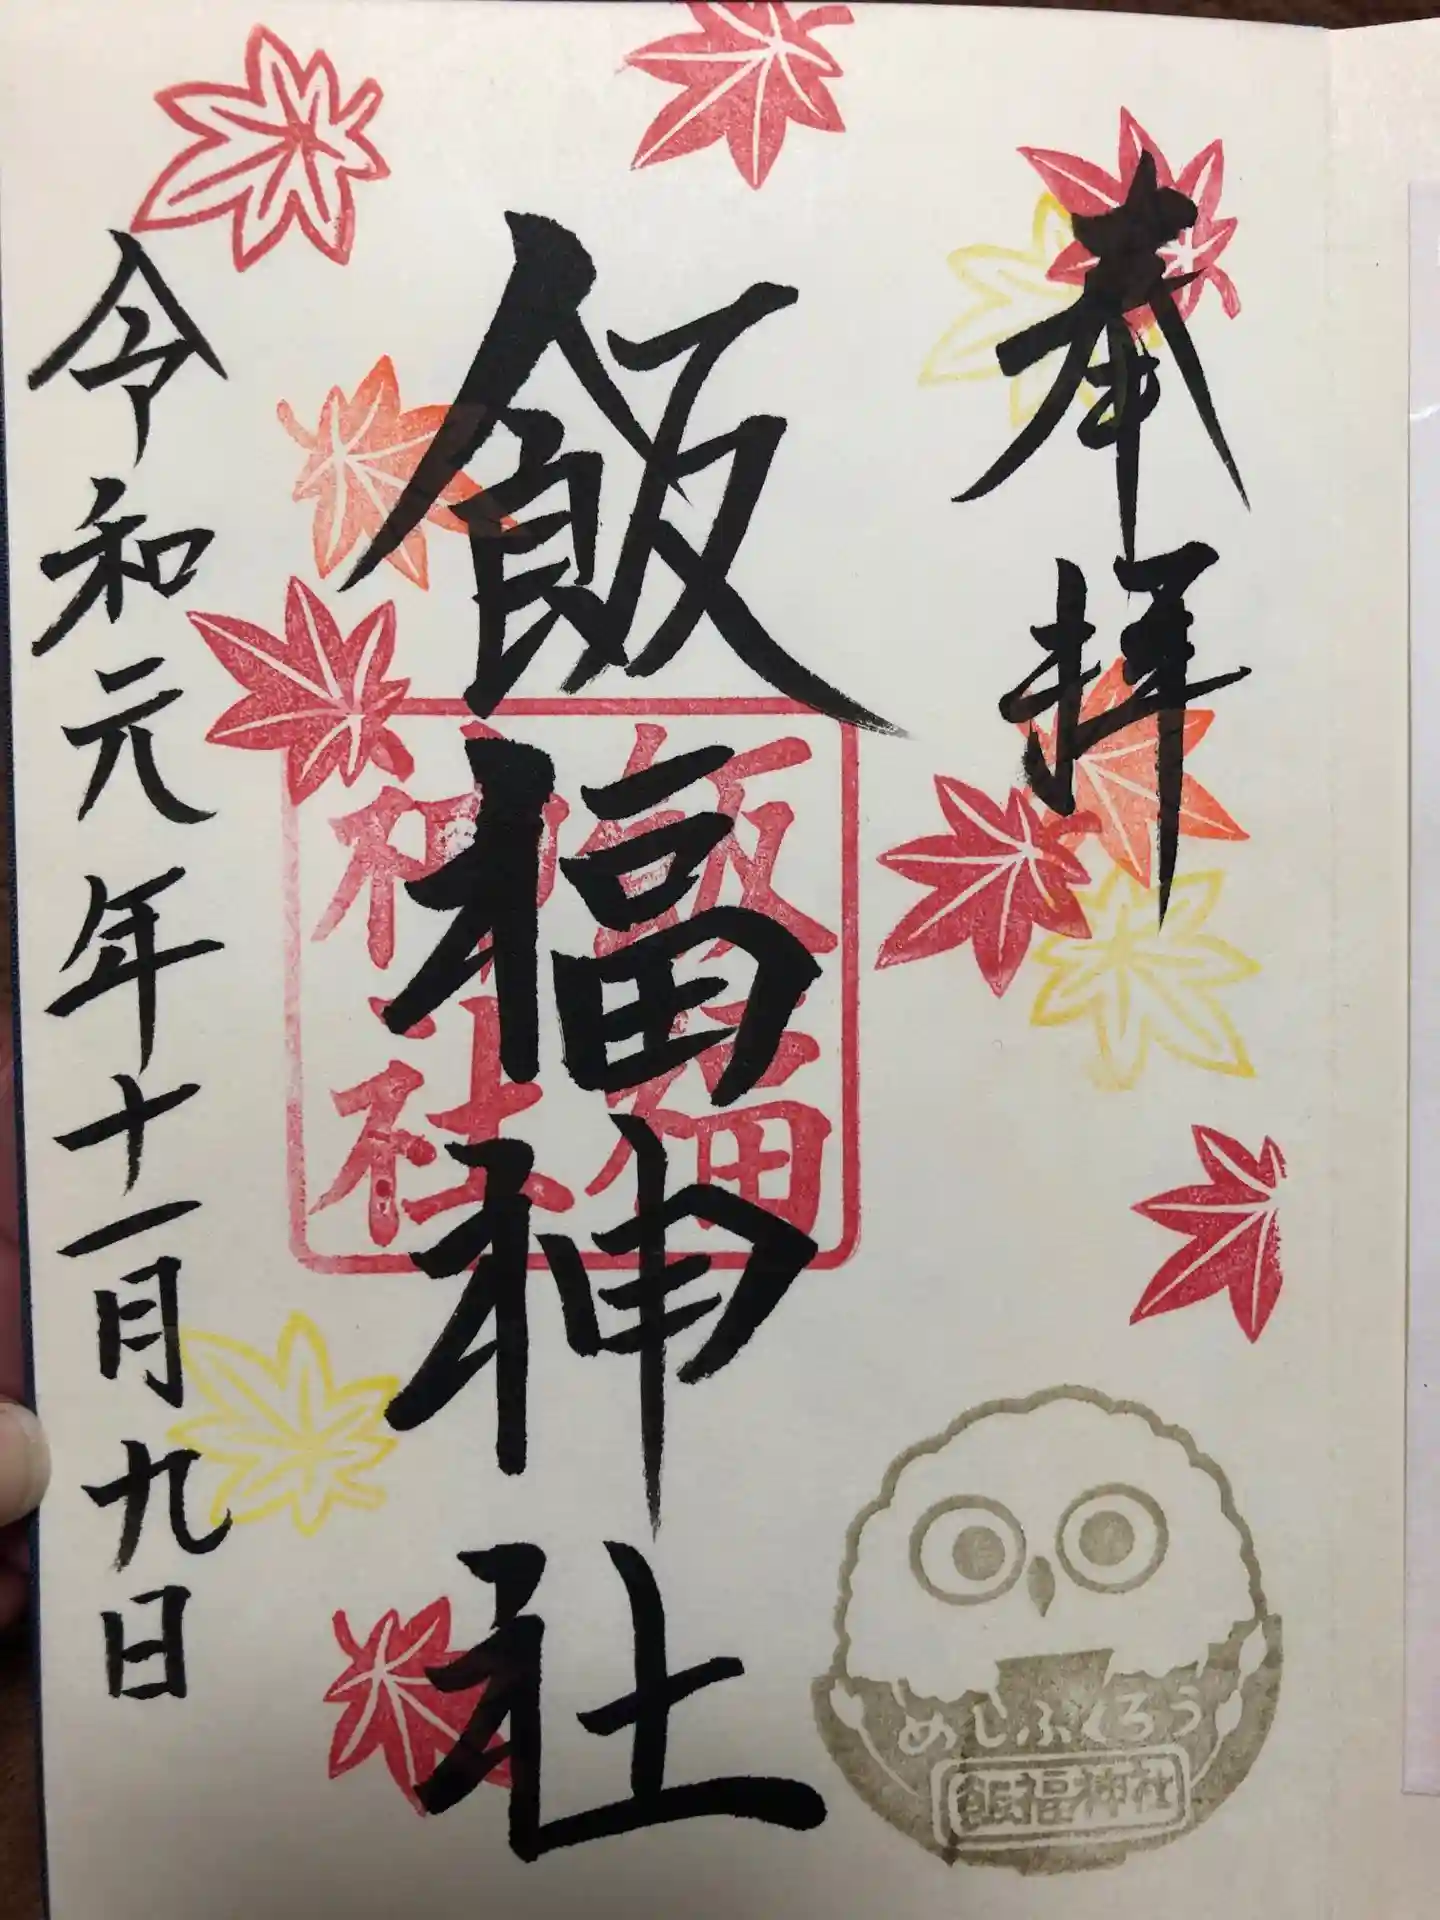 奉拝
飯福神社
飯福
神社
令和元年十一月九日
めしふくろう
飯福神社